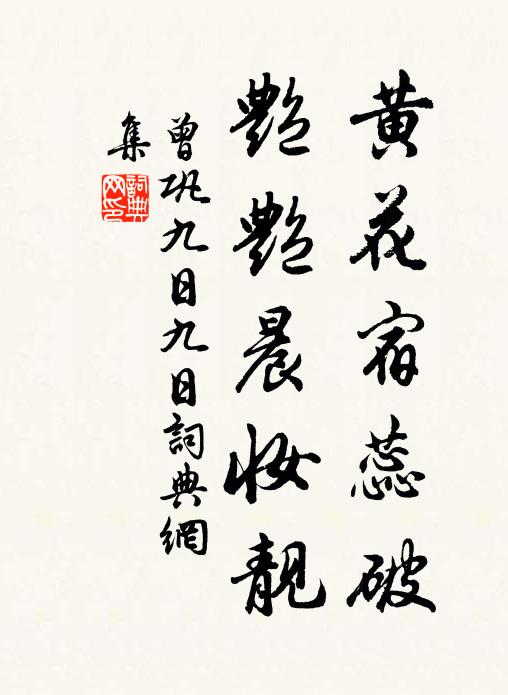 黄花宿蕊破
艷艷晨妝靚
曾巩九日九日詞典網
集
詞典
网印